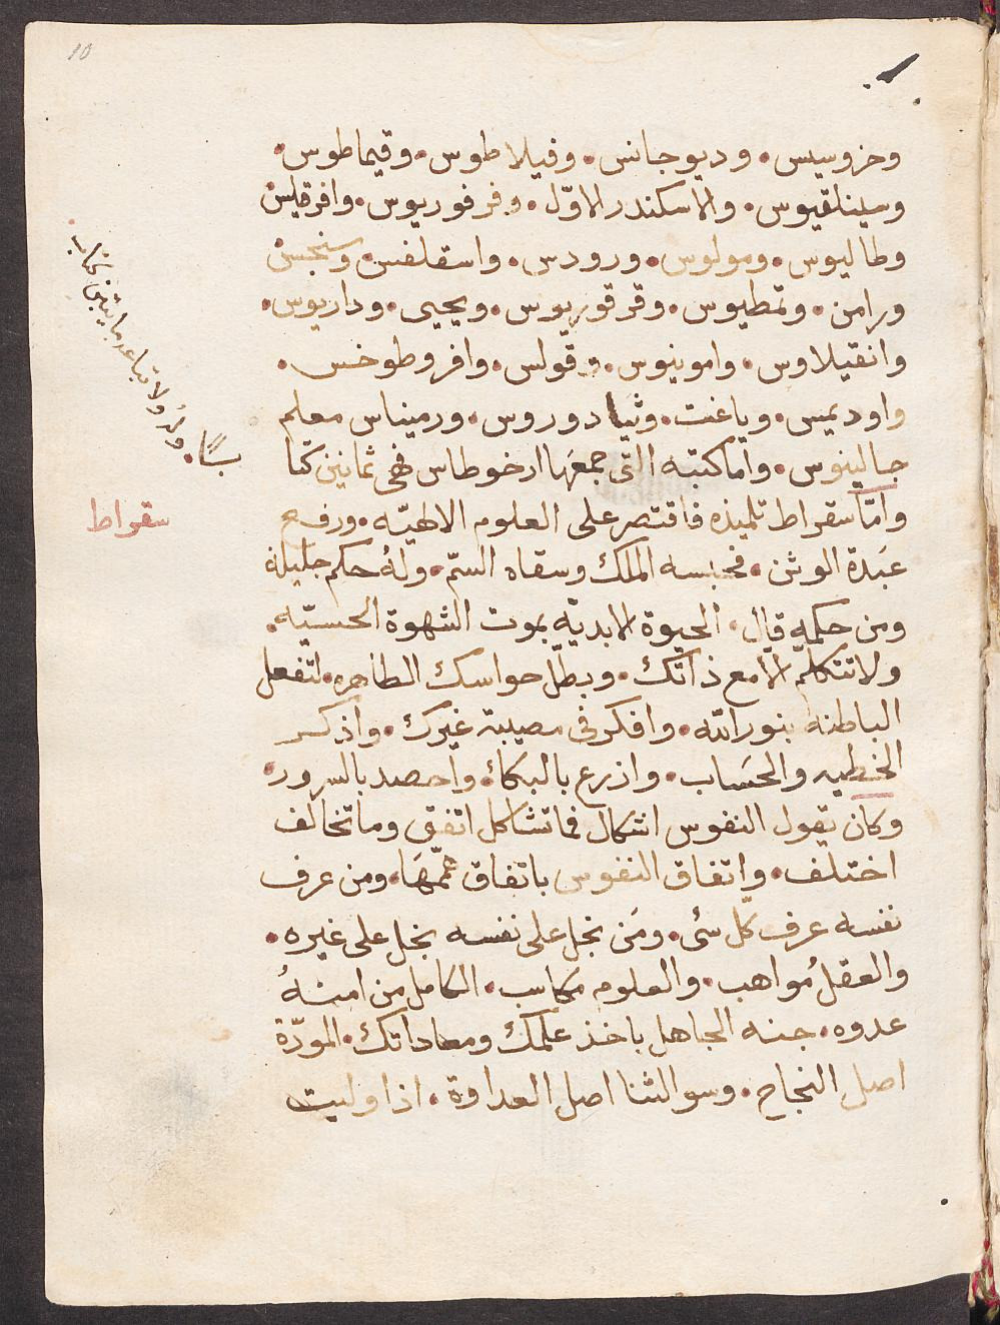 وخروسيس. وديوجانس. وفيلاطوس. وقيماطوس.
وسينلقيوس. والاسكندر الاوّل. وفرفوريوس. وافرقليس
وطاليوس. ومولوس. ورودس. واسقلفس. وسنجس
ورامن. وتمطيوس. وقرقوريوس. ويحيى. وداريوس.
وانقيلاوس. وامونيوس. وقولس. وافروطوخس.
واوديميس. وياغنت. وثيادوروس. ورميناس معلم
جالينوس. واما كتبه التى جمعَها ارخوطاس فهى ثمانين كتا
بًا. وله ولا تباعد مايتين كتاب.
وامّا سقراط تلميذه فاقتصر على العلوم الالهيّه. ورفع
سقراط
عَبَدة الوثن. فحبسه الملك وسقاه السمّ. ولهُ حكم جليلة
ومن حكمهِ قال. الحيوة الابديّه بموت الشهوة الحسيّه.
ولا تتكلّم الّا مع ذاتك. وبطّل حواسك الظاهره. لتفعل
الباطنه بنور الله. وافكر فى مصيبة غيرك. واذكر
الخطيه والحسَاب. وازرع بالبكاء. واحصد بالسرور.
وكان يقول النفوس اشكال فما تشاكل اتفق وما تخالف
اختلف. واتفاق النفوس باتفاق همّهَا. ومن عرف
نفسه عرف كل شى. ومَن بخل على نفسه بخل على غيره.
والعقلُ مواهب. والعلوم مكاسب. الكامل من امنهُ
عدوه. جنه الجاهل ياخذ علمك ومعاداتك. المودّة
اصل النجاح. وسو الثنا اصل العداوة. اذا وليت
10